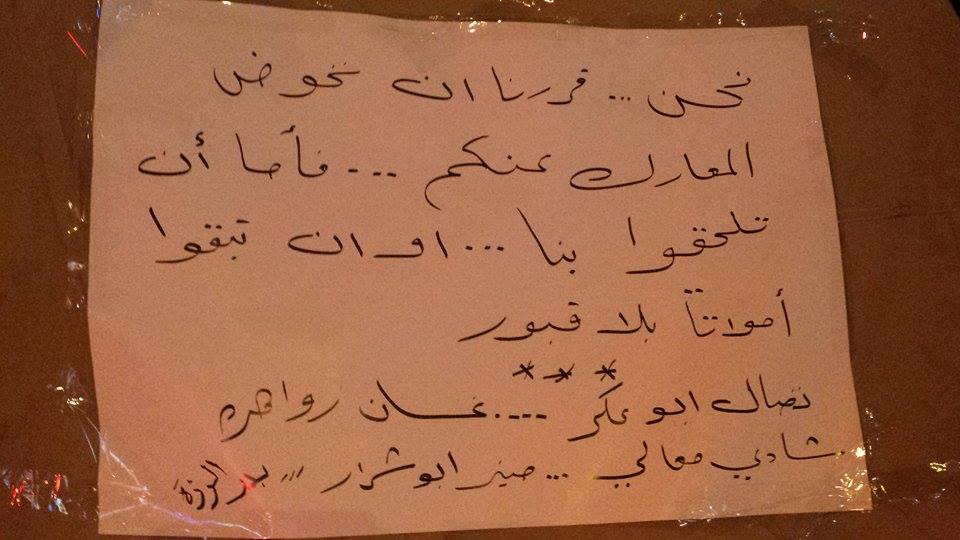 نحن ... قررنا ان نخوض
المعارك عنكم ... فأما أن
تلحقوا بنا ... او ان تبقوا
أمواتاً بلا قبور
* * *
نضال ابو عكر .... غسان زواهره
شادي معالي ... منير ابو شرار ,,, بدر الرزة